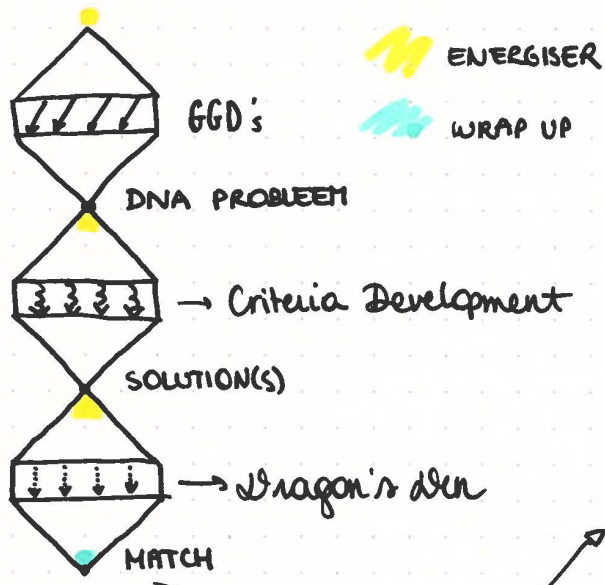 ENERGISER
WRAP UP
GGD's
DNA PROBLEEM
→ Criteria Development
SOLUTION(S)
→ Dragon's Den
MATCH